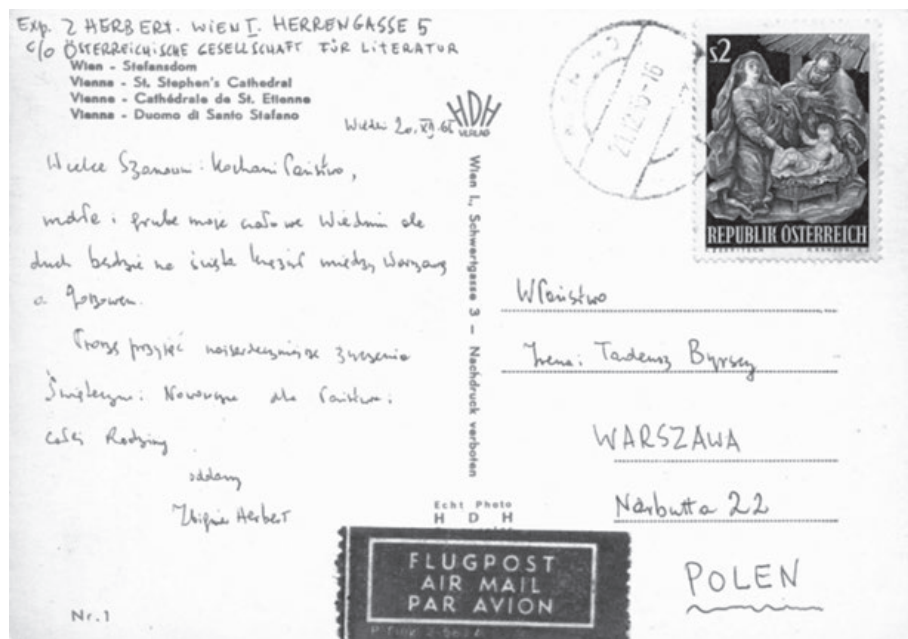 Exp. Z HERBERT. WIEN I. HERRENGASSE 5
c/o ÖSTERREICHISCHE GESELLSCHAFT FÜR LITERATUR
Wien - Stefansdom
Vienna - St. Stephen's Cathedral
Vienne - Cathédrale de St. Etienne
Vienna - Duomo di Santo Stefano
HDH
VERLAG
Wiedeń 20. XII. 65
Wielce Szanowni i Kochani Państwo,
małe i grube moje ciało we Wiedniu ale
duch będzie na święta krążył między Warszawą
a Gorzowem.
Proszę przyjąć najserdeczniejsze życzenia
Świąteczne i Noworoczne dla Państwa i
całej Rodziny
oddany
Zbigniew Herbert
Nr. 1
Wien I., Schwertgasse 3 – Nachdruck verboten
Echt Photo
H D H
FLUGPOST
AIR MAIL
PAR AVION
S2
REPUBLIK ÖSTERREICH
WPaństwo
Irena i Tadeusz Byrscy
WARSZAWA
Narbutta 22
POLEN